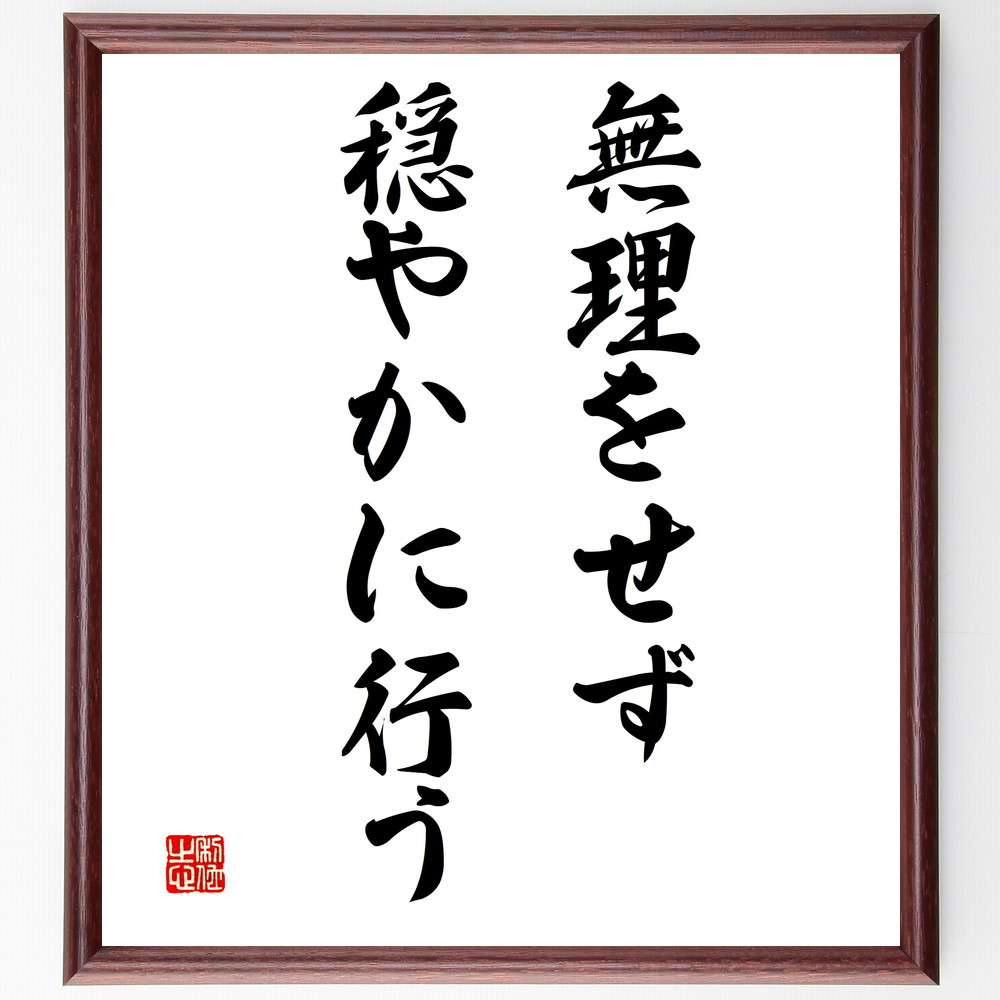 無理をせず
穏やかに行う